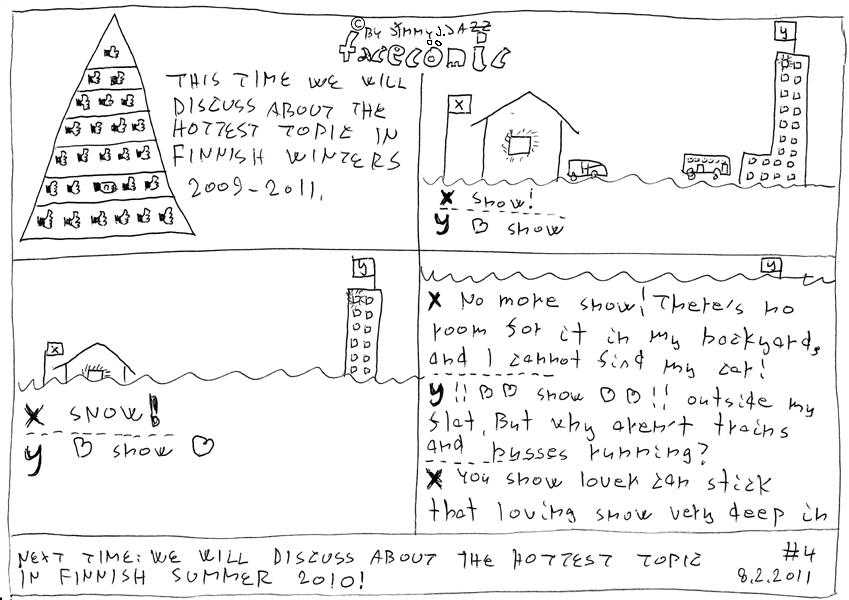 © BY JIMMY J. JAZZ
facecomic
THIS TIME WE WILL
DISCUSS ABOUT THE
HOTTEST TOPIC IN
FINNISH WINTERS
2009-2011.
X
y
X snow!
y ♡ snow
X
y
X SNOW!
y ♡ snow ♡
y
X No more snow! There's no
room for it in my backyard,
and I cannot find my car!
y !! ♡♡ snow ♡♡!! outside my
flat. But why aren't trains
and busses running?
X You snow lover can stick
that loving snow very deep in
NEXT TIME: WE WILL DISCUSS ABOUT THE HOTTEST TOPIC
IN FINNISH SUMMER 2010!
#4
8.2.2011